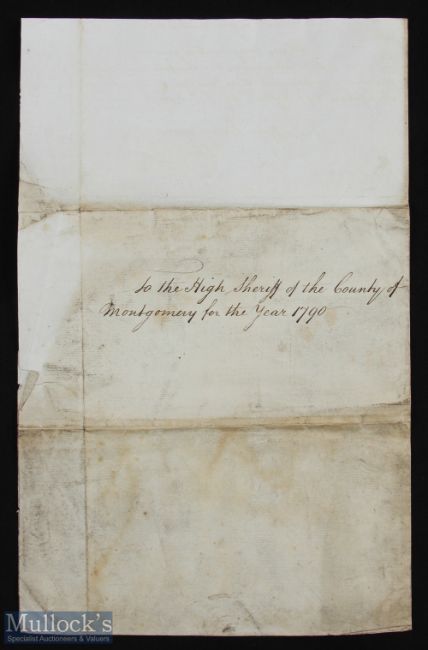 To the High Sheriff of the County of
Montgomery for the Year 1790
Mullock's
Specialist Auctioneers & Valuers